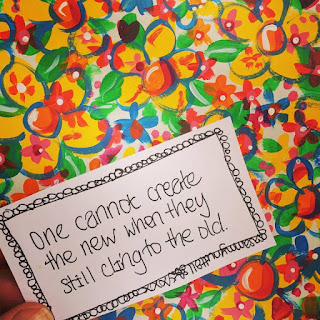 One cannot create
the new when they
still cling to the old.